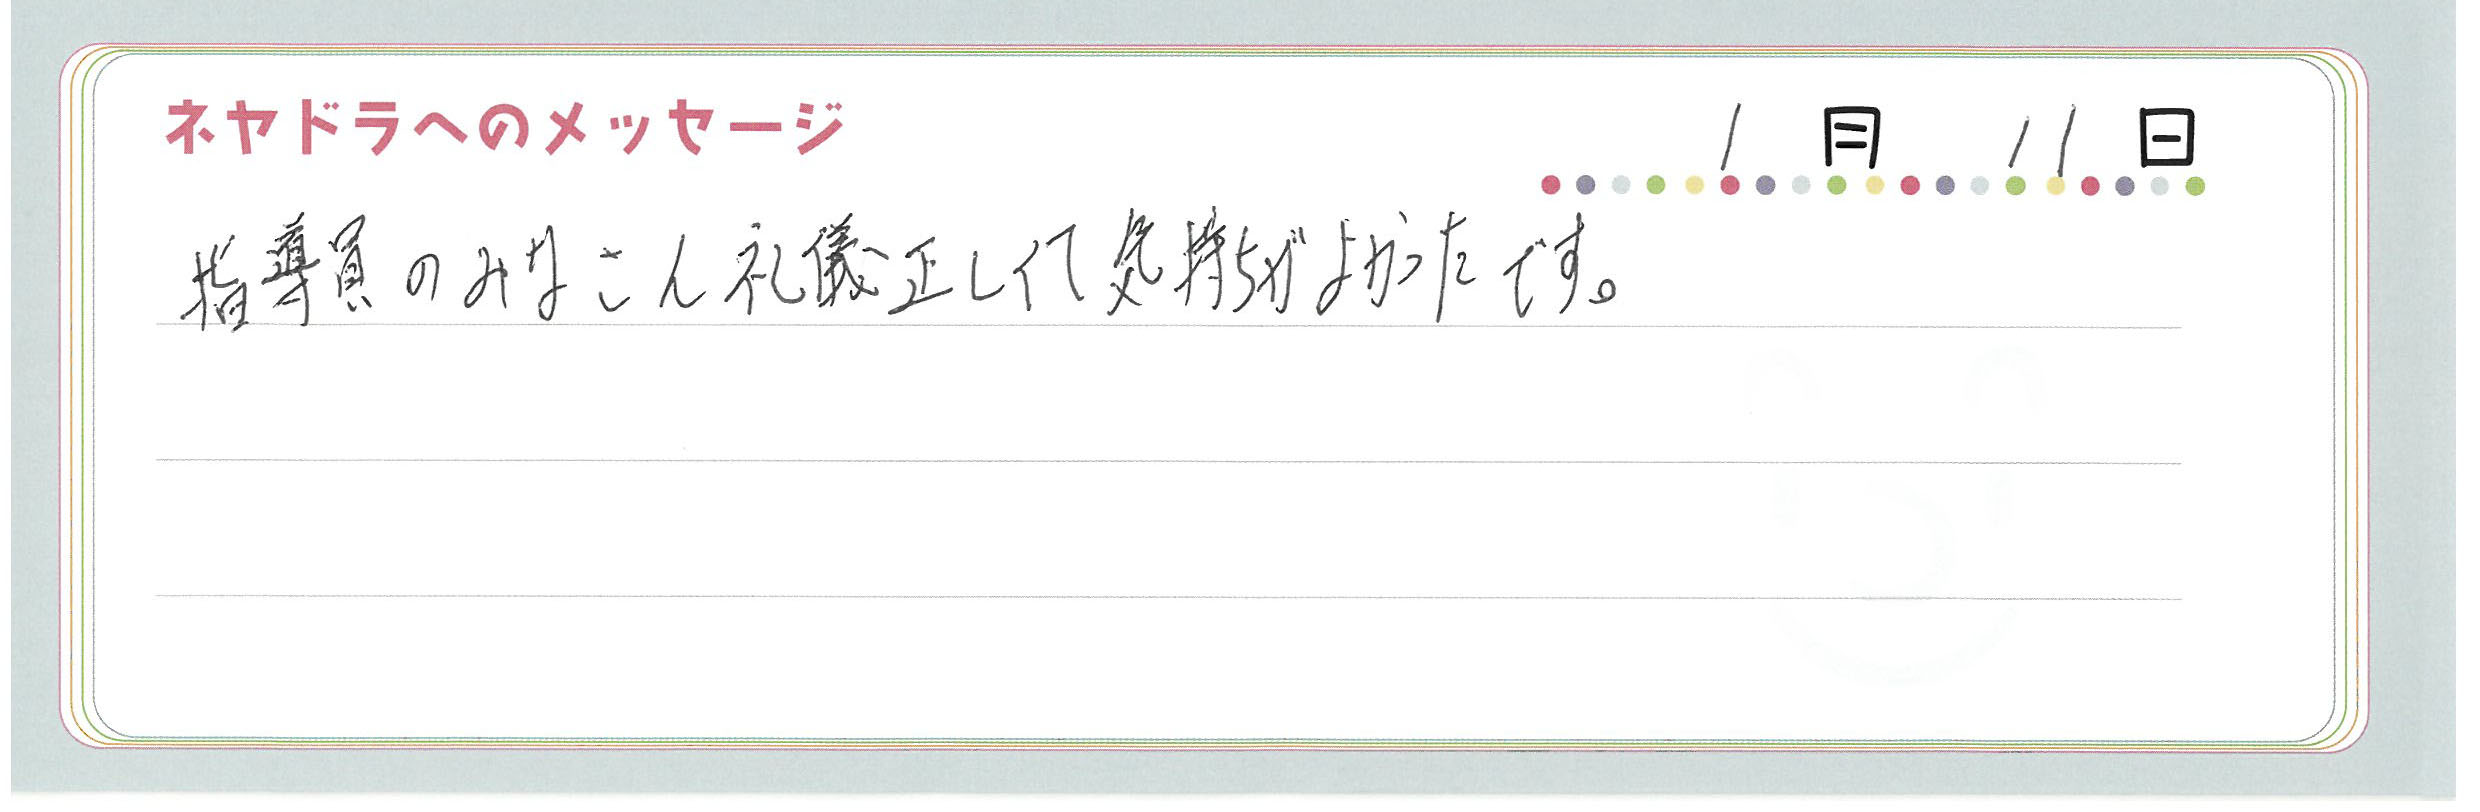 ネヤドラへのメッセージ
1月 11日
指導員のみなさん礼儀正しくて気持ちがよかったです。